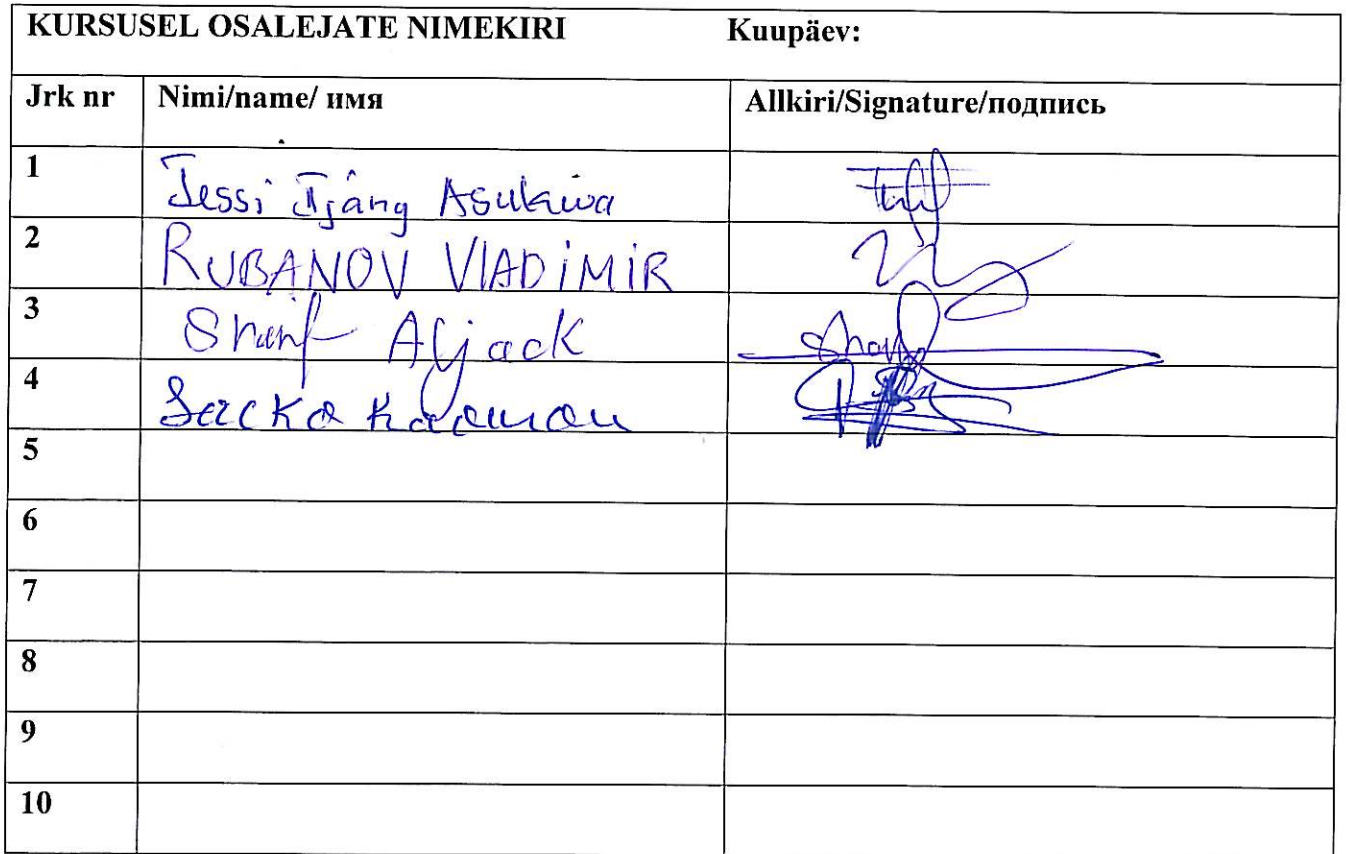 KURSUSEL OSALEJATE NIMEKIRI Kuupäev:
Jrk nr Nimi/name/ имя Allkiri/Signature/подпись
1 Jessi Asukwa
2 RUBANOV VlADiMiR
3 Sharif Aljack
4 Sacko
5
6
7
8
9
10